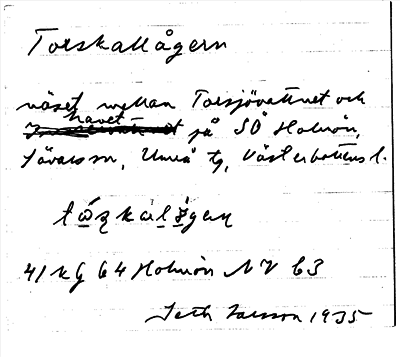 Torskallågern
näset mellan Torsjövattnet och
havet på SÖ Holmön,
Sävars sn, Umeå tg, Västerbottens l.
41 kg 64 Holmön NV 63
Seth Larsson 1935